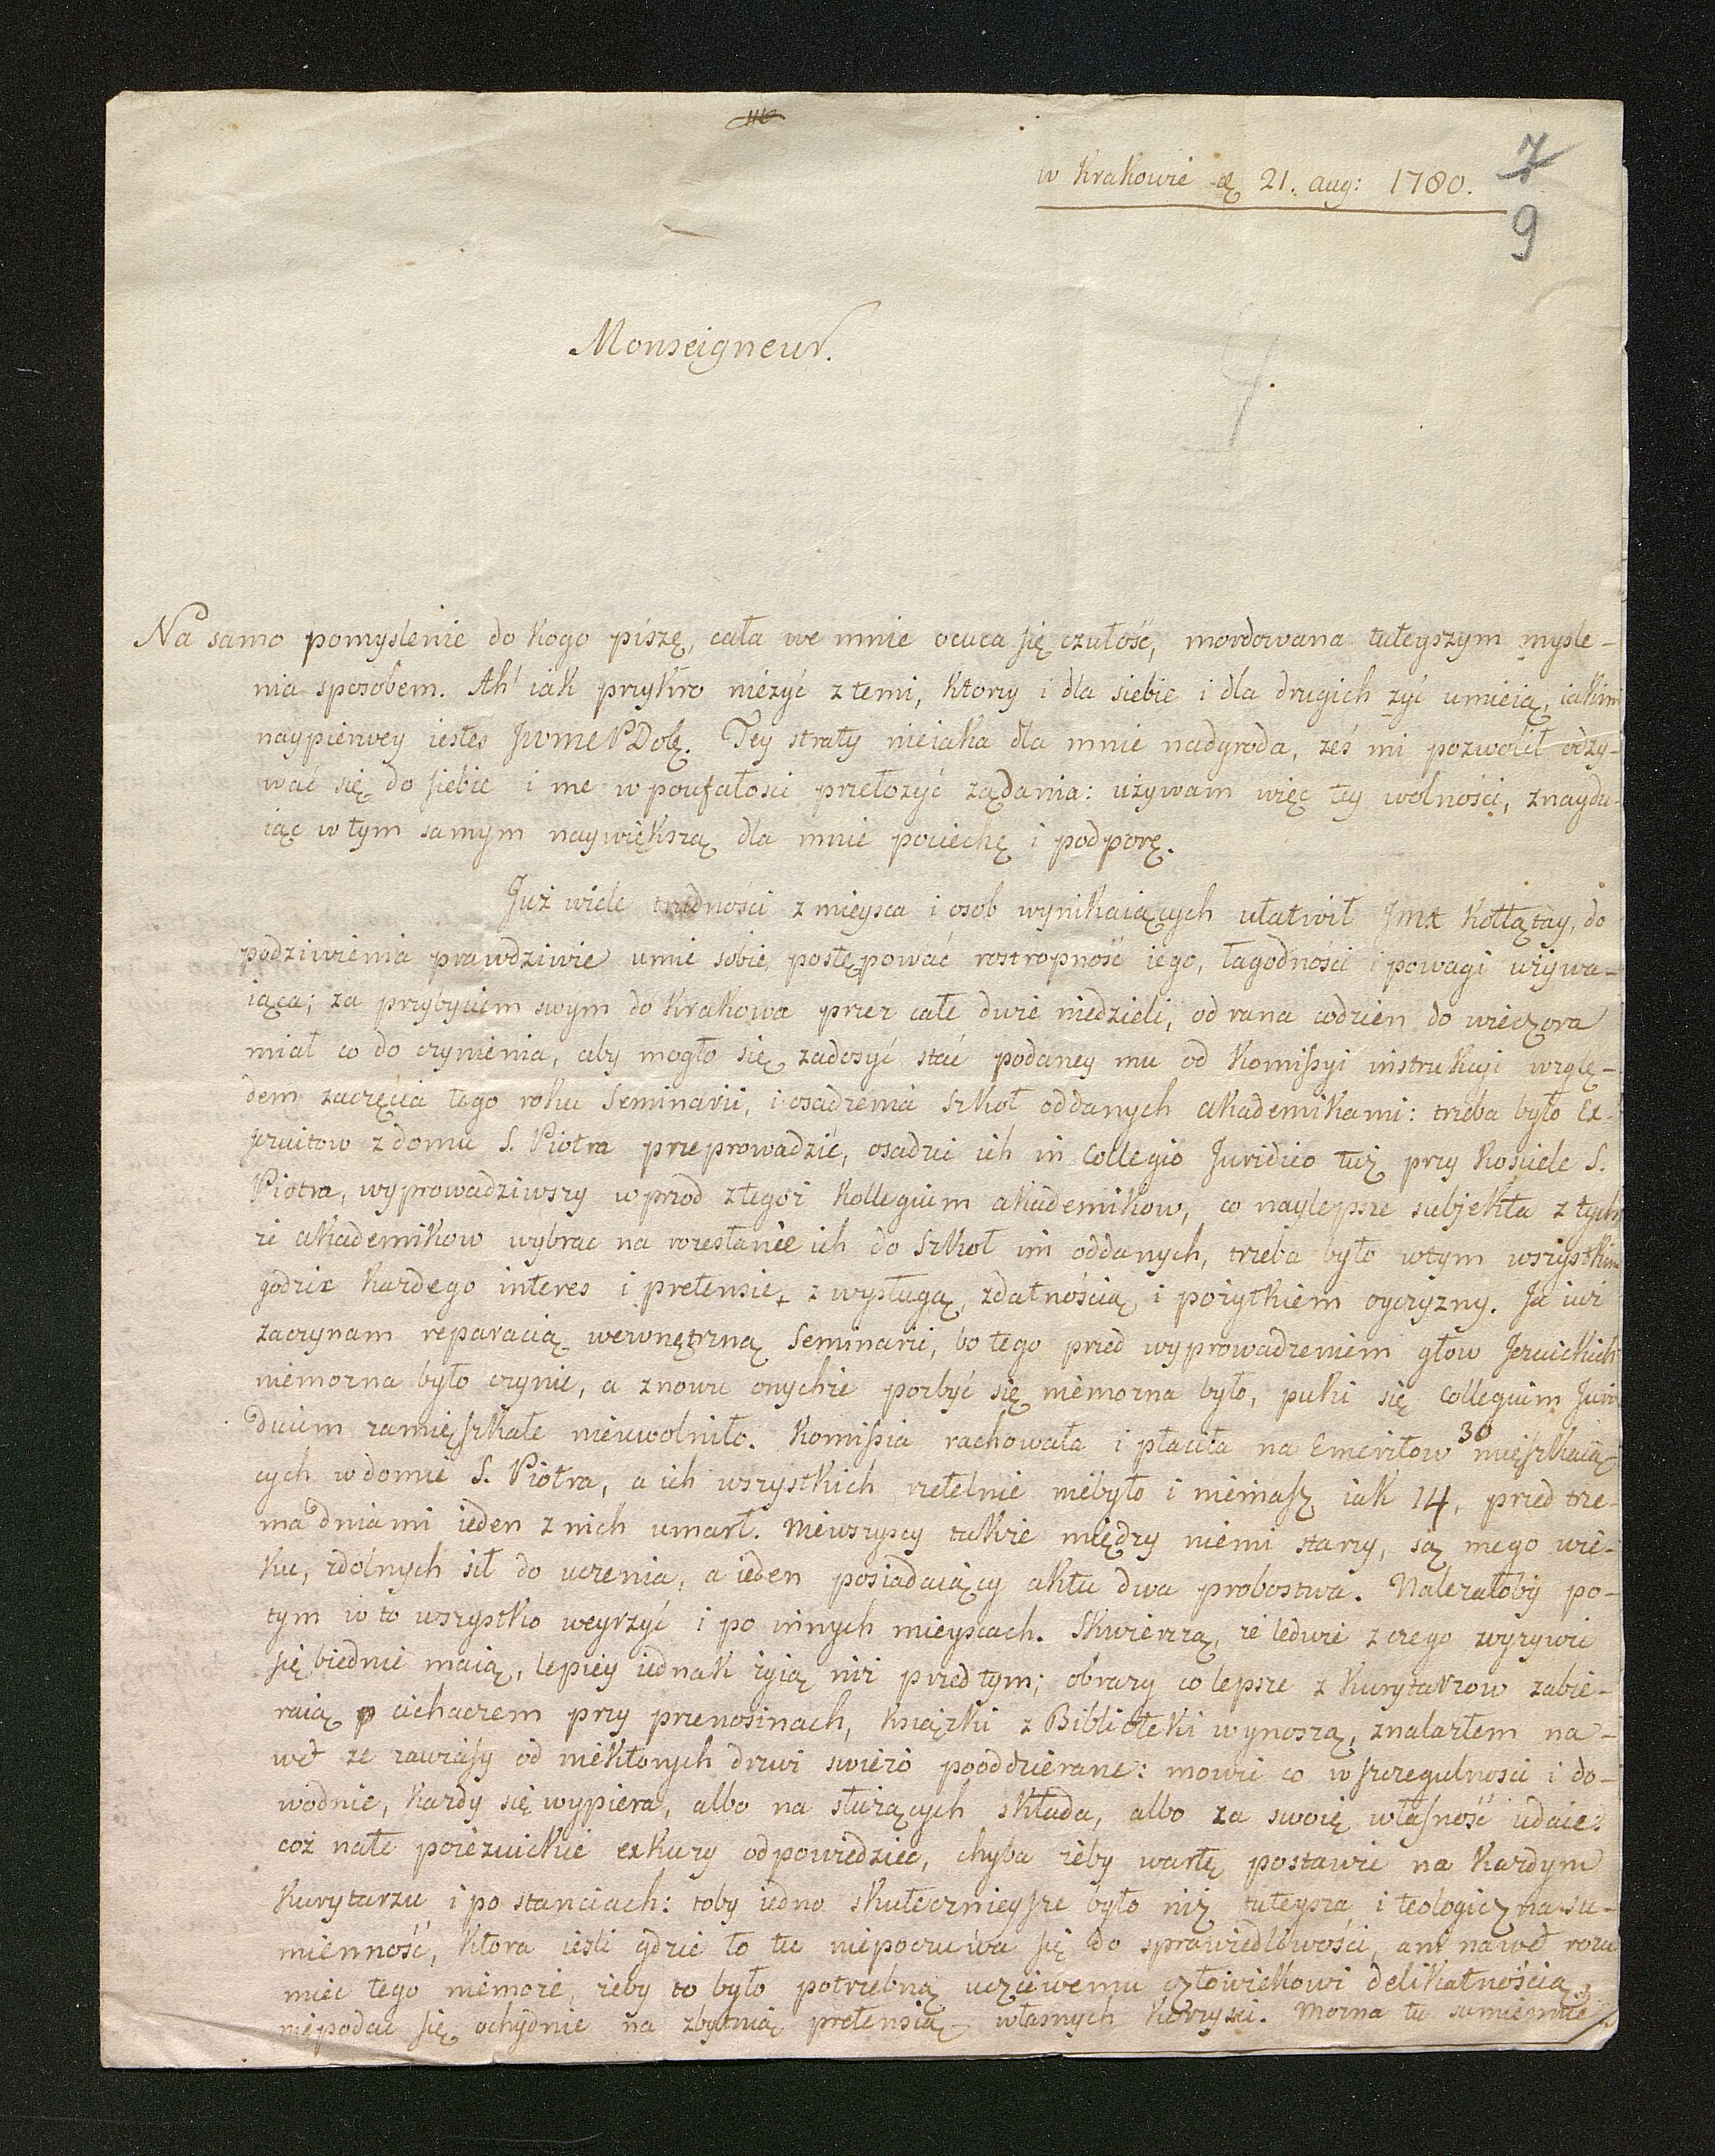 w Krakowie d. 21. aug: 1780.
7
9
4.
Monseigneur.
Na samo pomyslenie do kogo piszę, cała we mnie ocuca się czułość, mordowana tuteyszym mysle-
nia sposobem. Ah! iak przykro nieżyć z temi, ktorzy i dla siebie i dla drugich zyć umieią, iakim
naypierwey iesteś JWMPDobr. Tey straty nieiaka dla mnie nadgroda, żeś mi pozwolił odzy-
wać się do siebie i me w poufałosci przełozyć ządania: używam więc tey wolności, znaydu-
iąc w tym samym naywiększą dla mnie pociechę i podporę.
Już wiele trudności z mieysca i osob wynikaiących ułatwił JMX Kołłątay, do
podziwienia prawdziwie umie sobie postępować rostropność iego, łagodności i powagi używa-
iąca; za przybyciem swym do Krakowa przez całe dwie niedzieli, od rana codzien do wieczora
miał co do czynienia, aby mogło się zadosyć stać podaney mu od Komissyi instrukcyi wzglę-
dem zaczęcia tego roku Seminarii, i osadzenia Szkoł oddanych akademikami: trzeba było Ex-
Jezuitow z domu S. Piotra przeprowadzić, osadzić ich in Collegio Juridico tuż przy Kościele S.
Piotra, wyprowadziwszy wprzod z tegoż Kollegium akademikow, co naylepsze subjekta z tych
że akademikow wybrac na rozesłanie ich do Szkoł im oddanych, trzeba było w tym wszystkim
godzić kazdego interes i pretensię z wysługą, zdatnością i pożytkiem oyczyzny. Ja iuż
zaczynam reparacią wewnętrzną Seminarii, bo tego przed wyprowadzeniem głow Jezuickich
niemozna było czynić, a znowu onychże pozbyć się niemozna było, puki się Collegium Juri
dicum zamięszkałe nieuwolniło. Komissia rachowała i płaciła na Emeritow 30 mięszkaią-
cych w domie S. Piotra, a ich wszystkich rzetelnie niebyło i niemasz iak 14, przed trze-
ma dniami ieden z nich umarł. Niewszyscy takze między niemi starzy, są mego wie-
ku, zdolnych sił do uczenia, a ieden posiadaiący aktu dwa probostwa. Nalezałoby po-
tym w to wszystko weyrzyć i po innych mieyscach. Skwierczą, że ledwie z czego wyzywić
się biednie maią, lepiey iednak żyią niż przed tym; obrazy co lepsze z kurytarzow zabie-
raią cichaczem przy przenosinach, książki z Biblioteki wynoszą, znalazłem na-
wet ze zawiasy od niektorych drzwi swiezo pooddzierane: mowić co w szczegulnosci i do-
wodnie, kazdy się wypiera, albo na służących składa, albo za swoię własność udaie:
coż na te poiezuickie exkuzy odpowiedziec, chyba żeby wartę postawić na kazdym
kurytarzu i po stanciach: toby iedno skutecznieysze było niż tuteysza i teologiczna su-
mienność, ktora ieśli gdzie to tu niepoczuwa się do sprawiedliwości, ani nawet rozu
mieć tego niemoże, żeby to było potrzebną uczciwemu człowiekowi delikatnością,
niepodać się ochydnie na zbytnią pretensią własnych korzysci. Mozna tu sumiennie